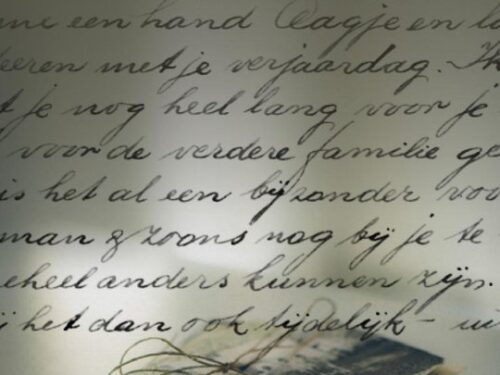 een hand Aagje en
met je verjaardag.
je nog heel lang voor je
voor de verdere familie
is het al een bijzonder
man & zoons nog bij je te
geheel anders kunnen zijn.
het dan ook tijdelijk -